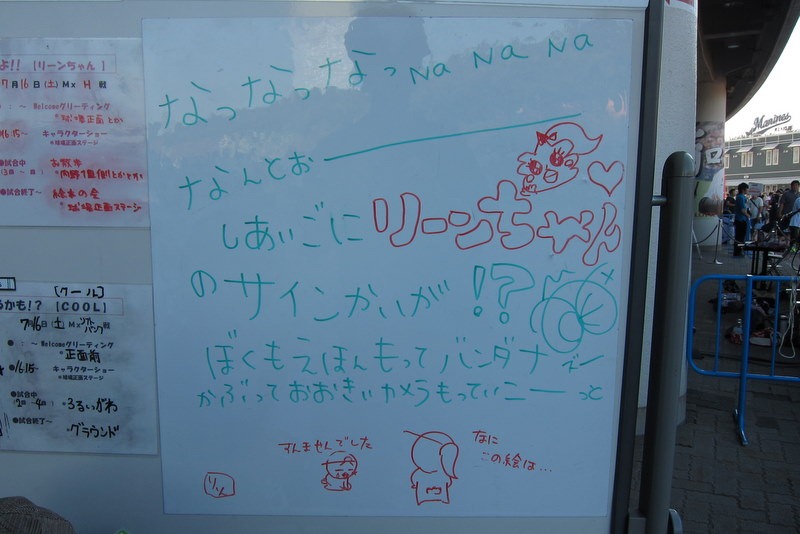 なっなっなっ NA NA NA
なんとぉー
しあいごに リーンちゃん
のサインかいが!?
ぼくもえほんもってバンダナズー
かぶっておおきいカメラもっていこーっと
すんませんでした
なに
この絵は…
リン
よ!! [リーンちゃん]
7月16日(土) Mx H 戦
●：～ Welcomeグリーティング
*球場正面とか
16:15～ キャラクターショー
*球場正面ステージ
●試合中
お散歩
●試合終了～
絵本の会
*球場正面ステージ
[クール]
るかも!? [COOL]
7月16日(土) Mx ソフトバンク 戦
●：～ Welcomeグリーティング
*正面前
●16:15～ キャラクターショー
*球場正面ステージ
●試合中
(2回～4回)
・ふるいがわ
●試合終了～
・グラウンド
Marines